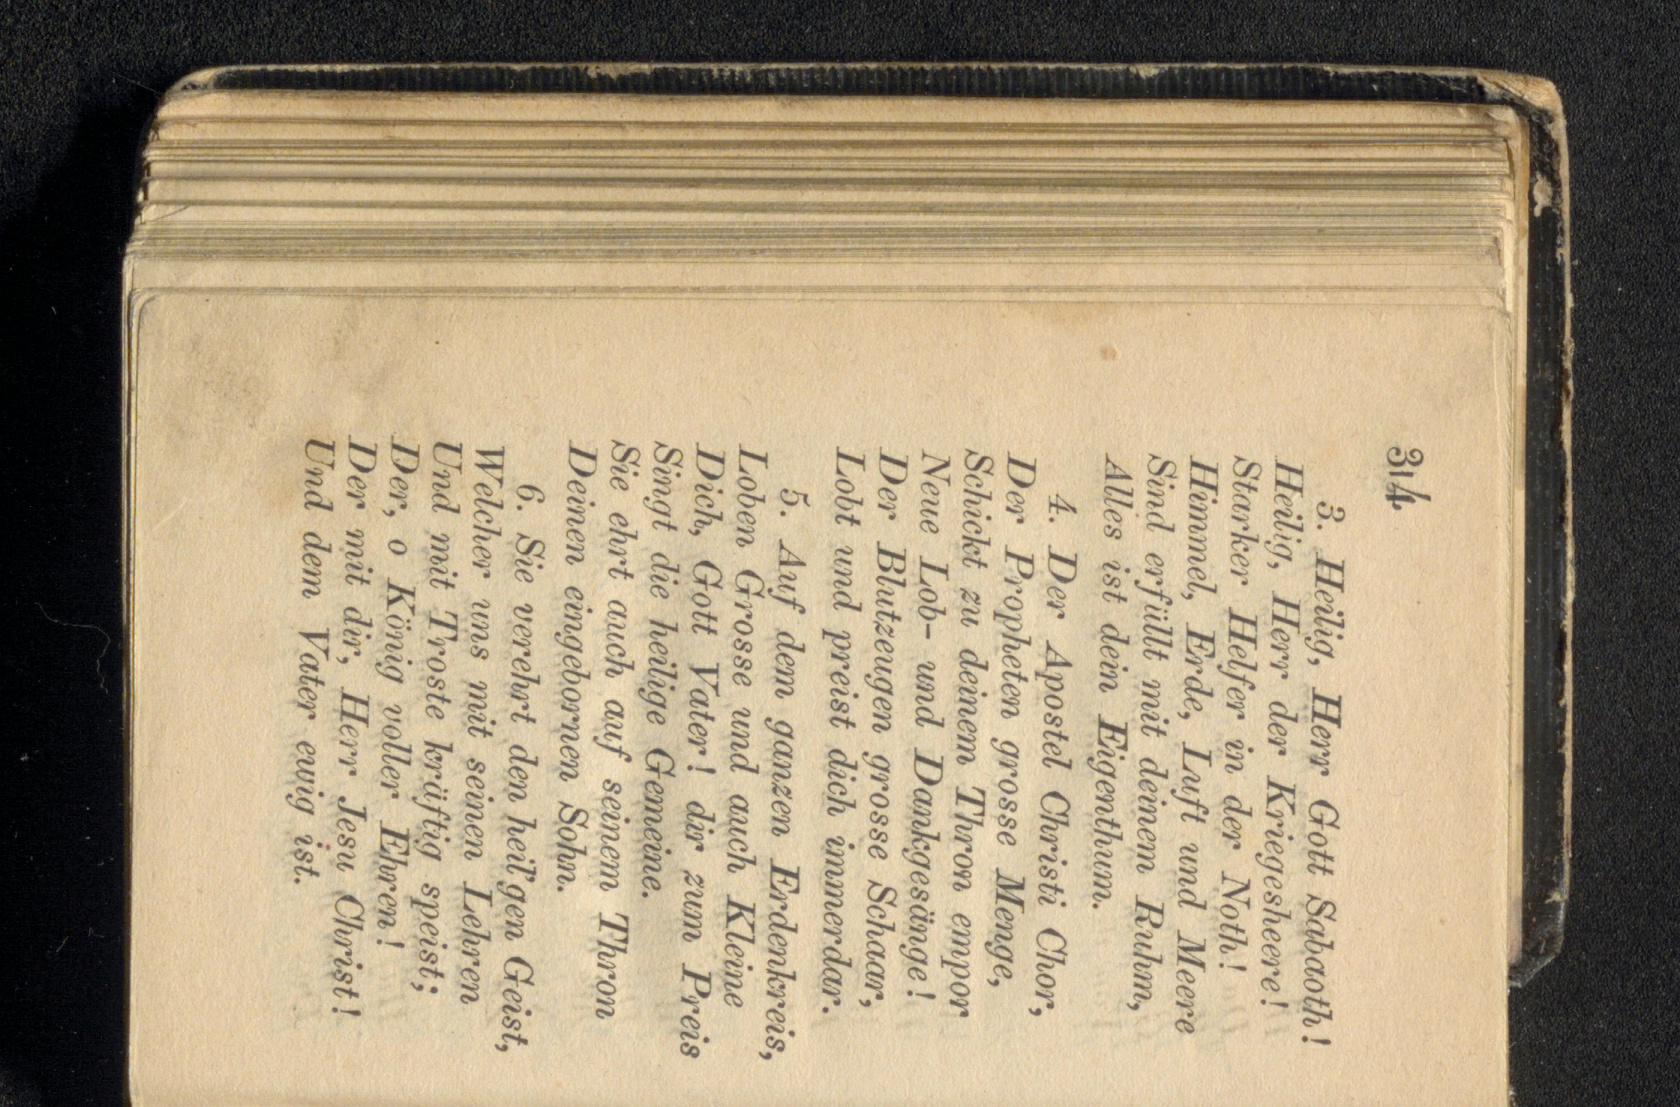 314
3. Heilig, Herr Gott Sabaoth!
Heilig, Herr der Kriegesheere!
Starker Helfer in der Noth!
Himmel, Erde, Luft und Meere
Sind erfüllt mit deinem Ruhm,
Alles ist dein Eigenthum.
4. Der Apostel Christi Chor,
Der Propheten grosse Menge,
Schickt zu deinem Thron empor
Neue Lob- und Dankgesänge!
Der Blutzeugen grosse Schaar,
Lobt und preist dich immerdar.
5. Auf dem ganzen Erdenkreis,
Loben Grosse und auch Kleine
Dich, Gott Vater! dir zum Preis
Singt die heilige Gemeine.
Sie ehrt auch auf seinem Thron
Deinen eingebornen Sohn.
6. Sie verehrt den heil'gen Geist,
Welcher uns mit seinen Lehren
Und mit Troste kräftig speist;
Der, o König voller Ehren!
Der mit dir, Herr Jesu Christ!
Und dem Vater ewig ist.